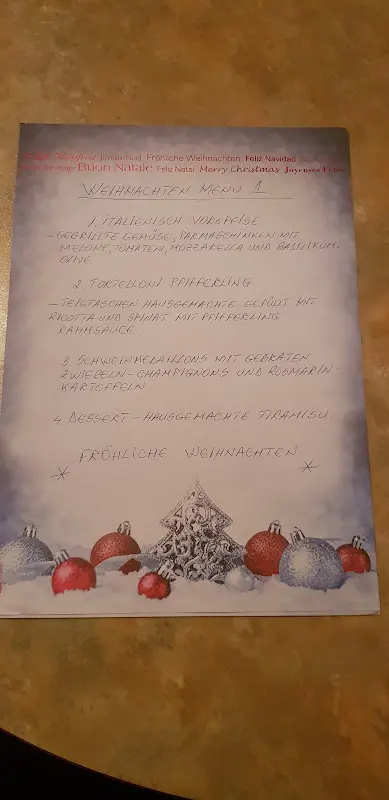 Joyeux Noel Fröhliche Weihnachten Feliz Navidad
Buon Natale Feliz Natal Merry Christmas Joyeuses Fêtes
WEIHNACHTEN MENU 1
1. ITALIENISCH VORSPEISE
- GEGRILLTE GEMÜSE, PARMASCHINKEN MIT
MELONE, TOMATEN, MOZZARELLA UND BASILIKUM.
OLIVE
2. TORTELLONI PFIFFERLING
- TEIGTASCHEN HAUSGEMACHTE GEFÜLLT MIT
RICOTTA UND SPINAT MIT PFIFFERLING
RAHMSAUCE
3. SCHWEINMEDAILLONS MIT GEBRATEN
ZWIEBELN - CHAMPIGNONS UND ROSMARIN-
KARTOFFELN
4. DESSERT - HAUSGEMACHTE TIRAMISU.
FRÖHLICHE WEIHNACHTEN